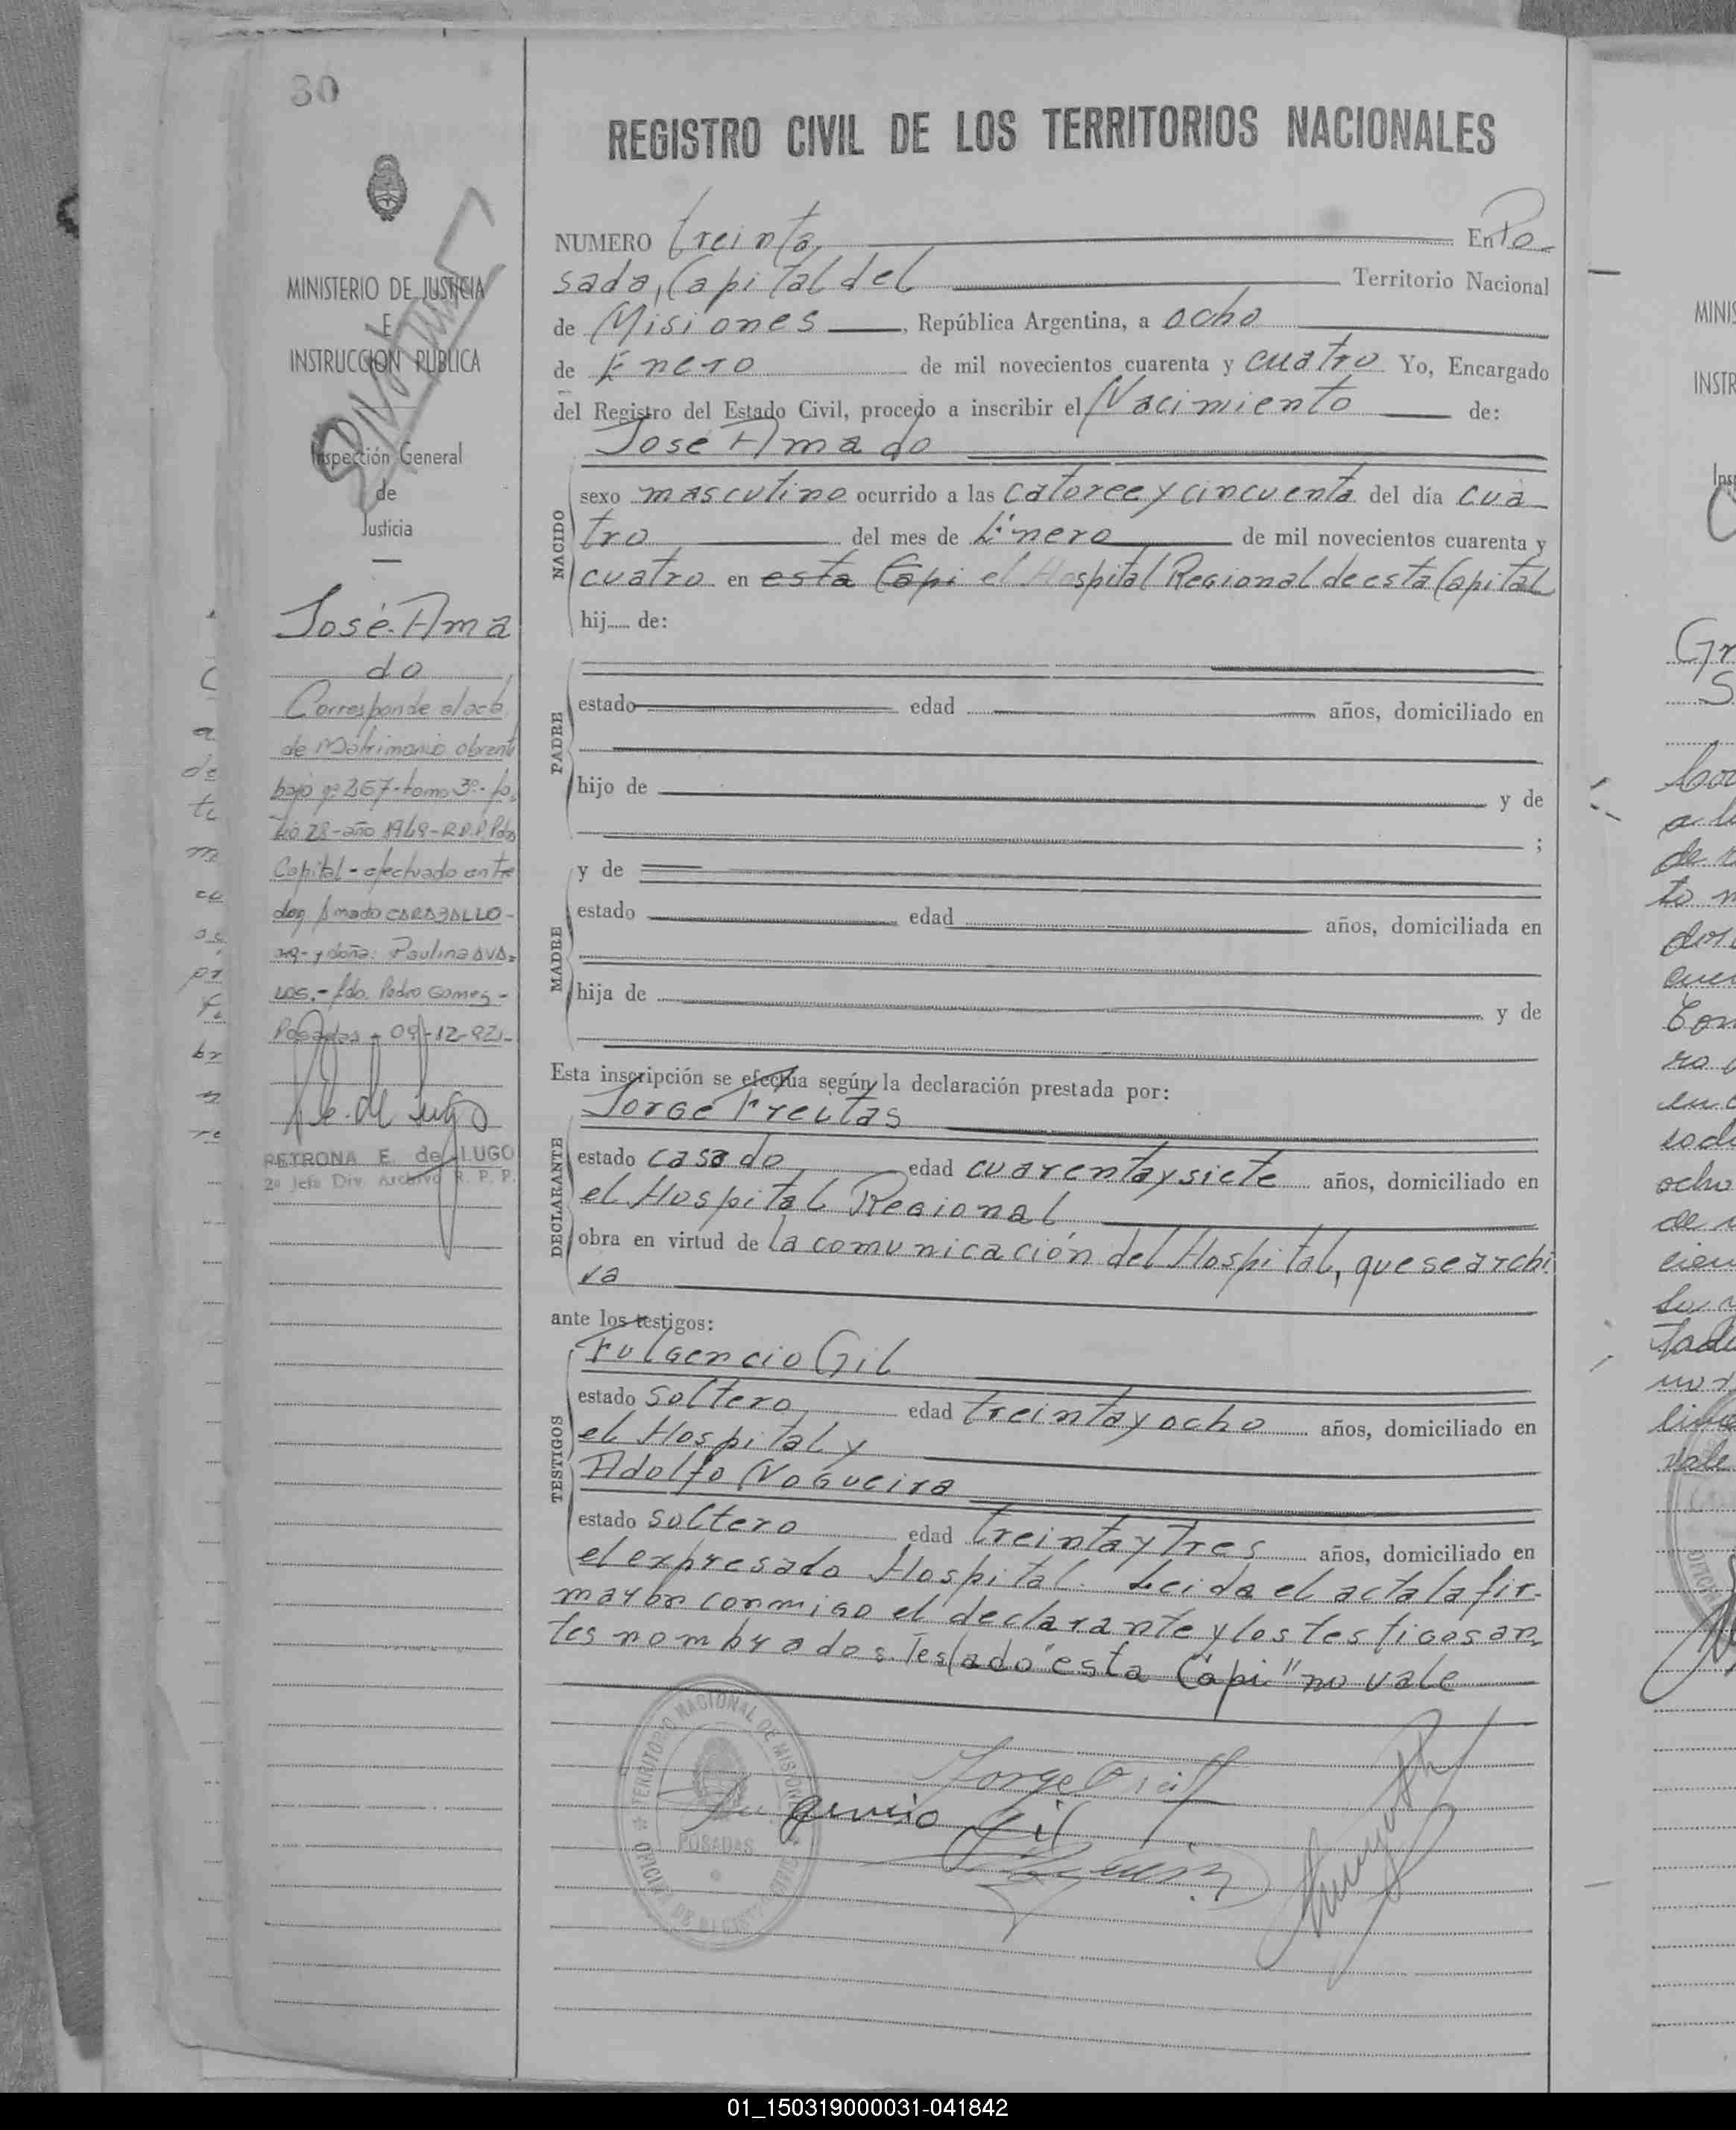 30
MINISTERIO DE JUSTICIA
E
INSTRUCCION PUBLICA
Inspección General
de
Justicia
José Ama
do
Corresponde al acta
de Matrimonio obrante
bajo nº 267-tomo 3º-fo
lio 28-año 1968-R.P.P. Pdas
Capital-efectuado ante
don Amado CARABALLO-
arg-y doña: Paulina AVA-
LOS.-fdo. Pedro Gomez-
Posadas-09-12-92-
PETRONA E. de LUGO
2º Jefe Div. Archivo R. P. P.
REGISTRO CIVIL DE LOS TERRITORIOS NACIONALES
NUMERO treinta En Po-
sada, Capital del Territorio Nacional
de Misiones, República Argentina, a ocho
de Enero de mil novecientos cuarenta y cuatro Yo, Encargado
del Registro del Estado Civil, procedo a inscribir el Nacimiento de:
José Amado
NACIDO
sexo masculino ocurrido a las catorce y cincuenta del día cua
tro del mes de Enero de mil novecientos cuarenta y
cuatro en esta Capi el Hospital Regional de esta Capital
hij..... de:
PADRE
estado edad años, domiciliado en
hijo de y de
;
MADRE
y de
estado edad años, domiciliada en
hija de y de
Esta inscripción se efectúa según la declaración prestada por:
DECLARANTE
Jorge Freitas
estado casado edad cuarenta y siete años, domiciliado en
el Hospital Regional
obra en virtud de la comunicación del Hospital, que se archi
va
ante los testigos:
TESTIGOS
Fulgencio Gil
estado soltero edad treinta y ocho años, domiciliado en
el Hospital y
Adolfo Nogueira
estado soltero edad treinta y tres años, domiciliado en
el expresado Hospital. Leida el acta la fir-
maron conmigo el declarante y los testigos an
tes nombrados. Testado "esta Capi" no vale
TERRITORIO NACIONAL DE MISIONES
POSADAS
Gil
01_150319000031-041842